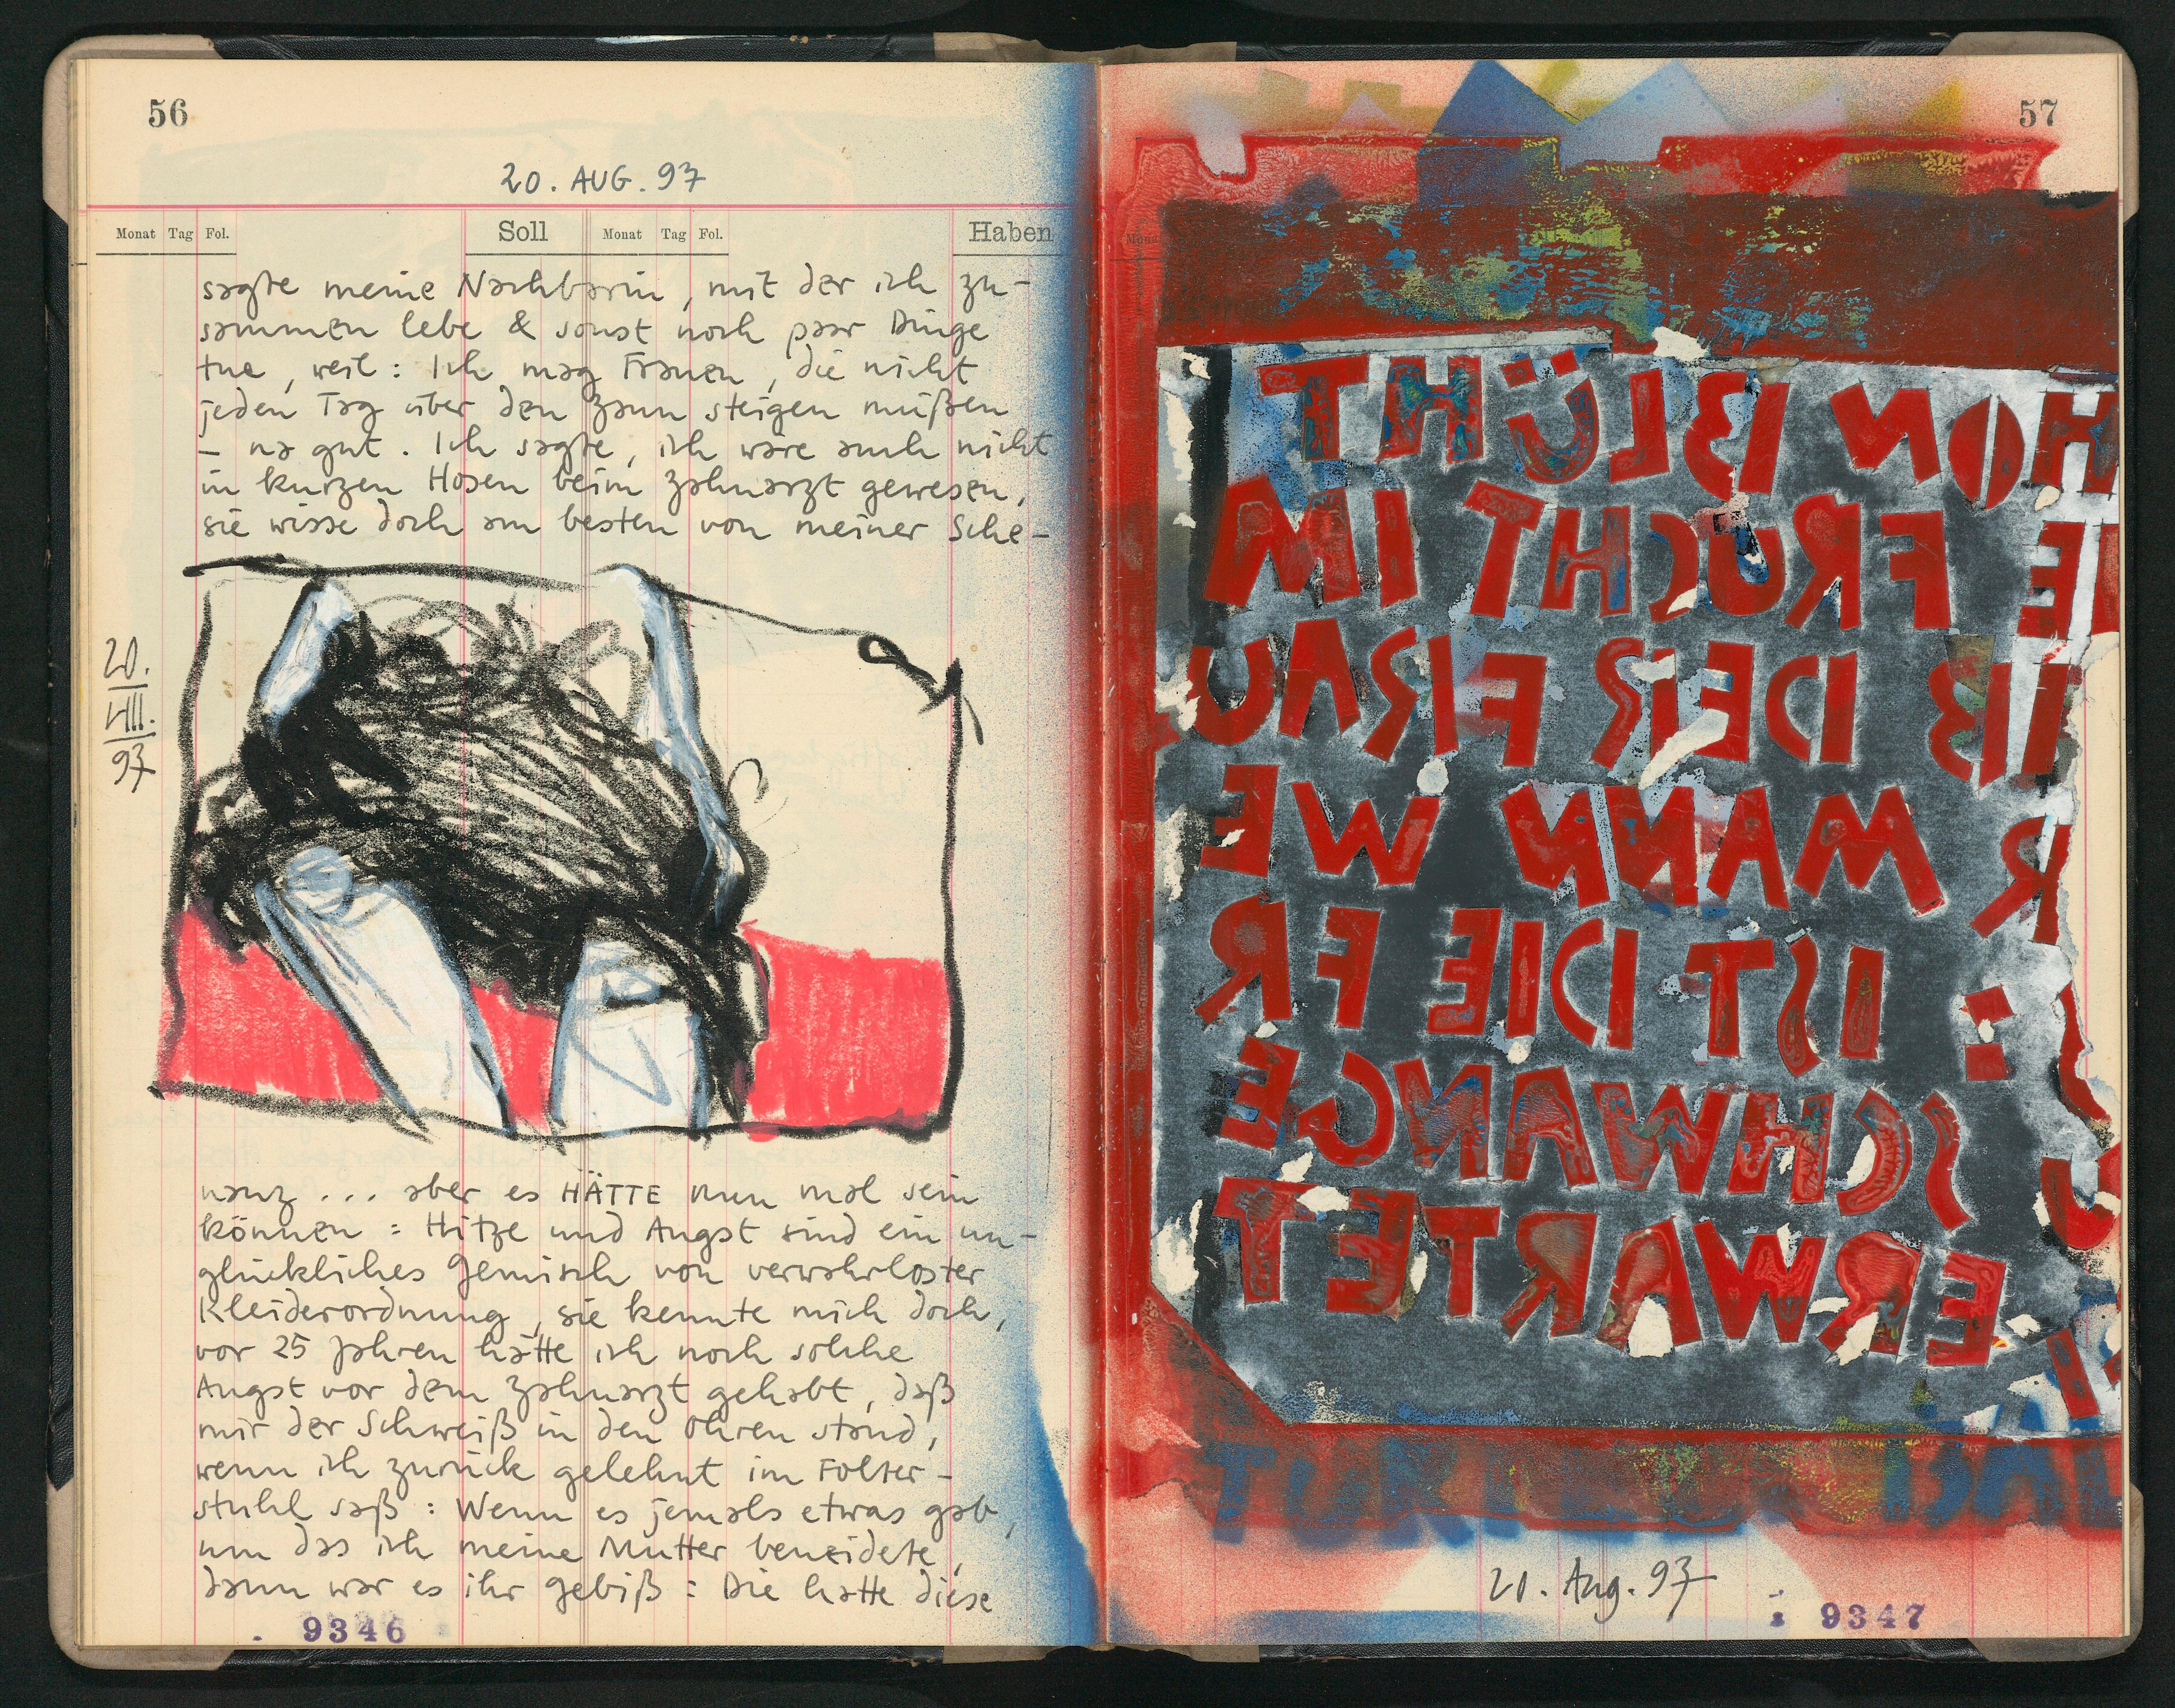 56
20. AUG. 97
Monat Tag Fol. Soll Monat Tag Fol. Haben
sagte meine Nachbarin, mit der ich zu-
sammen lebe & sonst noch paar Dinge
tue, weil: Ich mag Frauen, die nicht
jeden Tag über den Zaun steigen müßen
– na gut. Ich sagte, ich wäre auch nicht
in kurzen Hosen beim Zahnarzt gewesen,
sie wisse doch am besten von meiner Sche-
20.
VIII.
97
nanz ... aber es HÄTTE nun mal sein
können: Hitze und Angst sind ein un-
glückliches Gemisch von verwahrloster
Kleiderordnung, sie kennte mich doch,
vor 25 Jahren hätte ich noch solche
Angst vor dem Zahnarzt gehabt, daß
mir der Schweiß in den Ohren stand,
wenn ich zurück gelehnt im Folter-
stuhl saß: Wenn es jemals etwas gab,
um das ich meine Mutter beneidete,
dann war es ihr Gebiß: Die hatte diese
9346
57
HON BLÜHT
IE FRUCHT IM
IB DER FRAU
R MANN WE
: IST DIE FR
SCHWANGE
ERWARTET
20. Aug. 97
9347